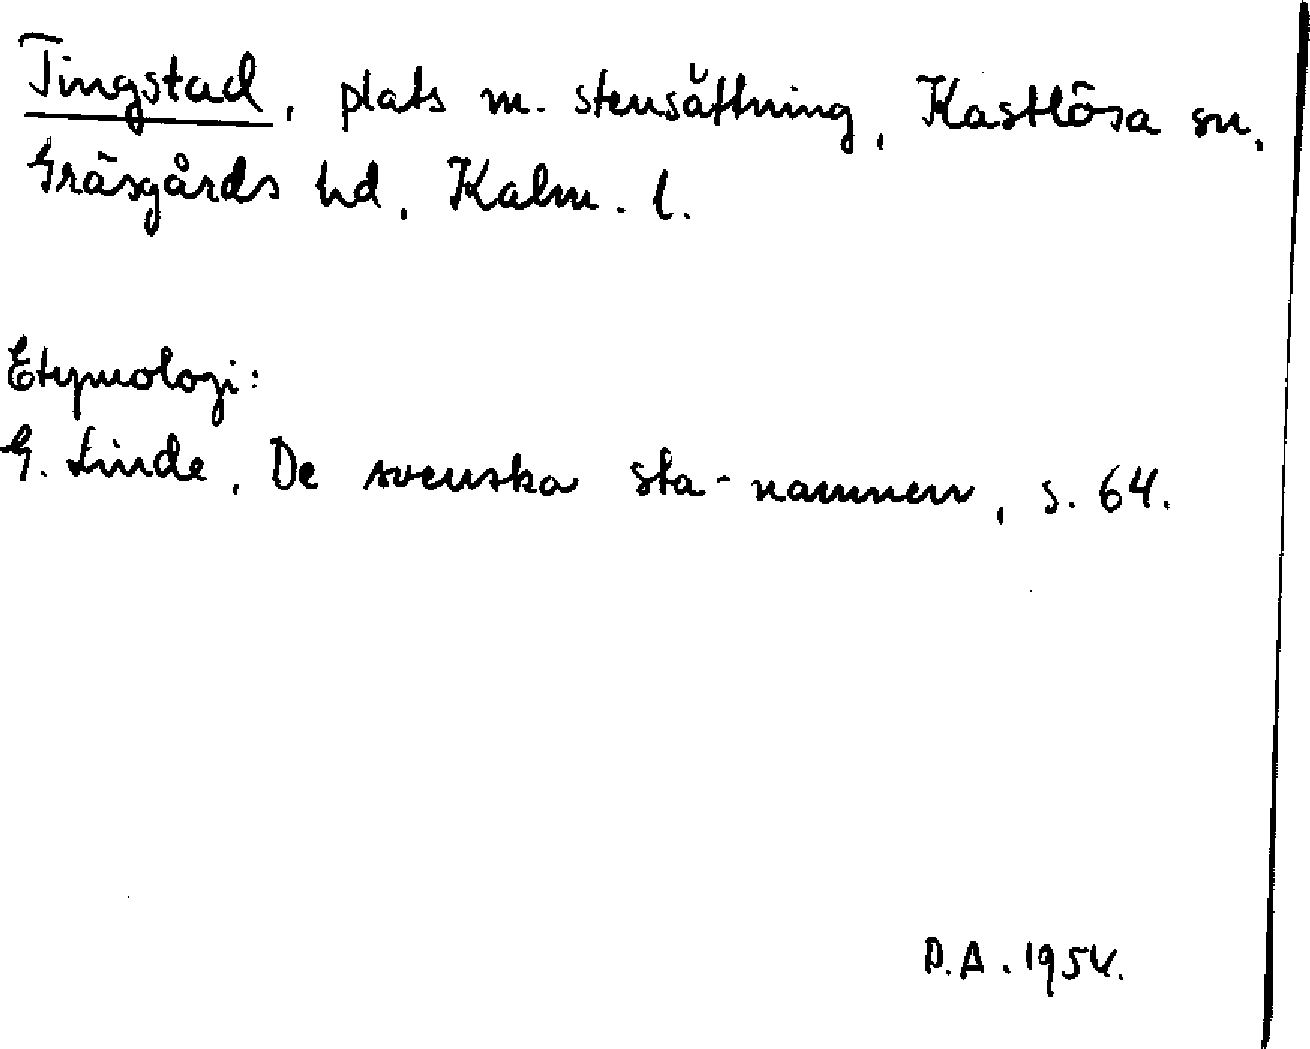 Tingstad, plats m. stensättning, Kastlösa sn,
Gräsgårds hd, Kalm. l.
Etymologi:
G. Linde, De svenska sta-namnen, s. 64.
D.A. 1954.